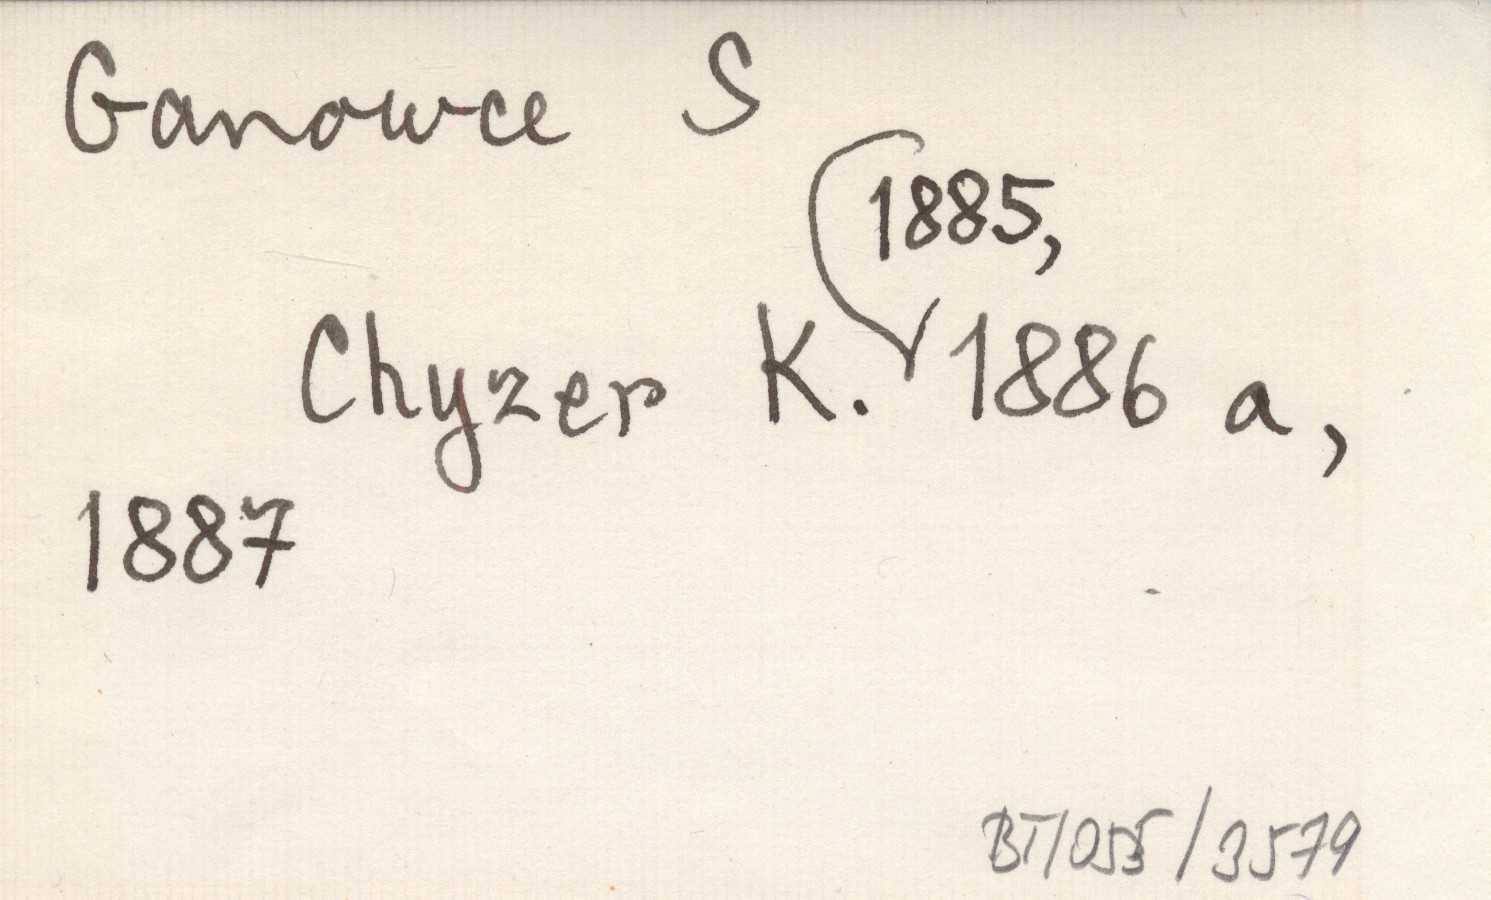 Ganowce S
1885,
Chyzer K. 1886 a,
1887
BT/055/3579